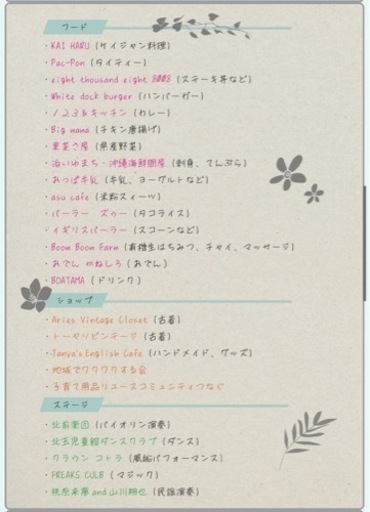 フード
・KAI HARU (ケイジャン料理)
・Pac-Pon (タイティー)
・eight thousand eight 8008 (ステーキ丼など)
・White dock burger (ハンバーガー)
・123&キッチン (カレー)
・Big mana (チキン唐揚げ)
・里菜さ屋 (県産野菜)
・泊いゆまち・沖縄海鮮問屋 (刺身、てんぷら)
・おっぱ牛乳 (牛乳、ヨーグルトなど)
・asu cafe (米粉スィーツ)
・パーラー ズゥー (タコライス)
・イギリスパーラー (スコーンなど)
・Boom Boom Farm (有機生はちみつ、チャイ、マッサージ)
・おでん かねしろ (おでん)
・BOATAMA (ドリンク)
ショップ
・Aries Vintage Closet (古着)
・トーヤリビンテージ (古着)
・Tanya's English Cafe (ハンドメイド、グッズ)
・地域でワクワクする会
・子育て用品リユースコミュニティつなぐ
ステージ
・北前楽団 (バイオリン演奏)
・北玉児童館ダンスクラブ (ダンス)
・クラウン コトラ (風船パフォーマンス)
・FREAKS CULB (マジック)
・桃原来夢 and 山川翔也 (民謡演奏)